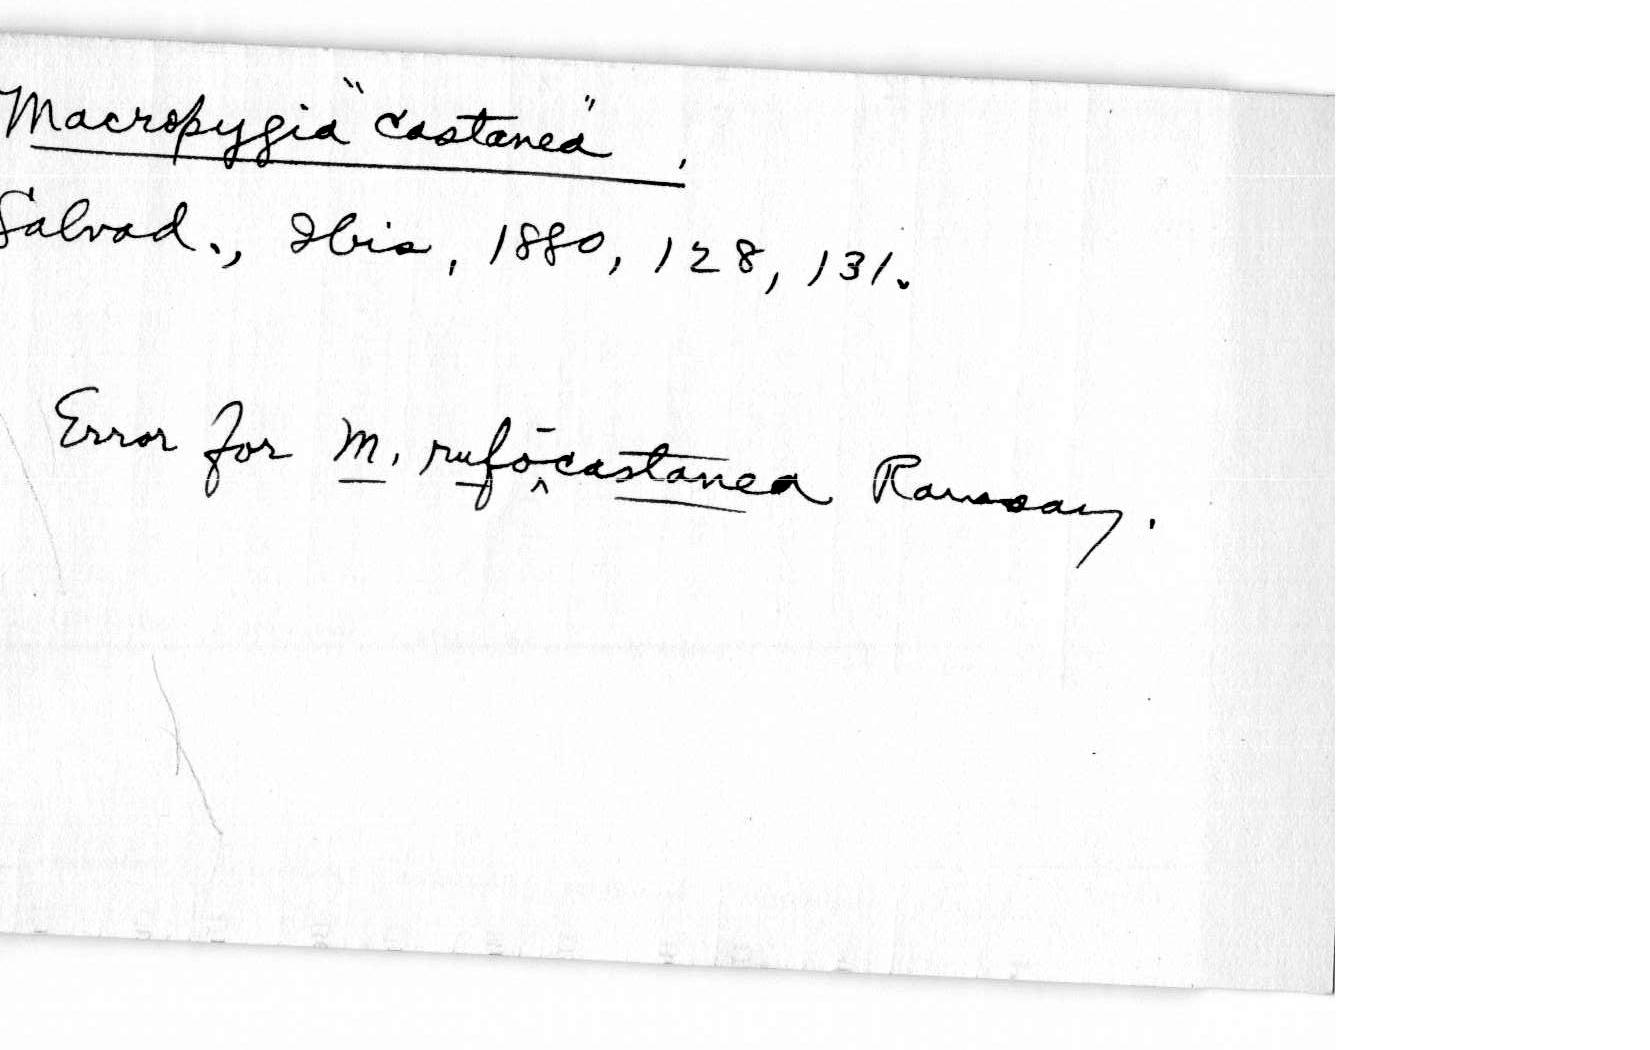 Macropygia "castanea",
Salvad., Ibis, 1880, 128, 131.
Error for M. rufo-castanea Ramsay.